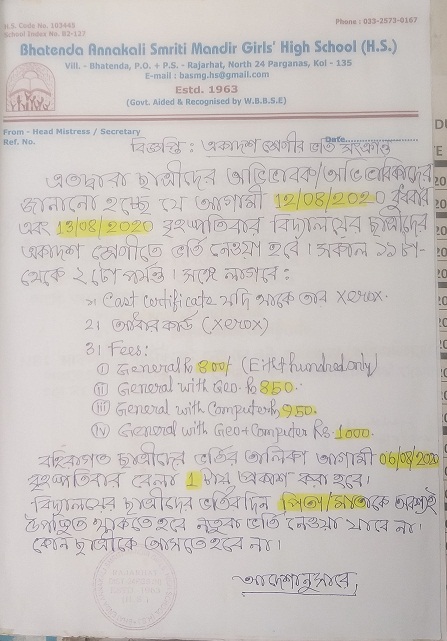 H.S. Code No. 103445
School Index No. B2-127
Phone : 033-2573-0167
Bhatenda Annakali Smriti Mandir Girls' High School (H.S.)
Vill. - Bhatenda, P.O. + P.S. - Rajarhat, North 24 Parganas, Kol - 135
E-mail : basmg.hs@gmail.com
Estd. 1963
(Govt. Aided & Recognised by W.B.B.S.E)
From - Head Mistress / Secretary
Ref. No.
Date
বিজ্ঞপ্তি : একাদশ শ্রেণীর ভর্তি সংক্রান্ত
এতদ্বারা ছাত্রীদের অভিভাবক/অভিভাবিকাদের
জানানো হচ্ছে যে আগামী 12/08/2020 বুধবার
এবং 13/08/2020 বৃহস্পতিবার বিদ্যালয়ের ছাত্রীদের
একাদশ শ্রেণীতে ভর্তি নেওয়া হবে। সকাল ১১টা-
থেকে ২টো পর্যন্ত। সঙ্গে লাগবে :
১। Cast Certificate যদি থাকে তার Xerox.
2। আধার কার্ড (Xerox)
3। Fees:
(i) General Rs 800/ (Eight hundred only)
(ii) General with Geo. Rs 850.
(iii) General with Computer Rs 950.
(iv) General with Geo + Computer Rs. 1000.
বহিরাগত ছাত্রীদের ভর্তির তালিকা আগামী 06/08/2020
বৃহস্পতিবার বেলা 1 টায় প্রকাশ করা হবে।
বিদ্যালয়ের ছাত্রীদের ভর্তির দিন পিতা/মাতাকে অবশ্যই
উপস্থিত থাকতে হবে নতুবা ভর্তি নেওয়া যাবে না।
কোন ছাত্রীকে আসতে হবে না।
আদেশানুসারে,